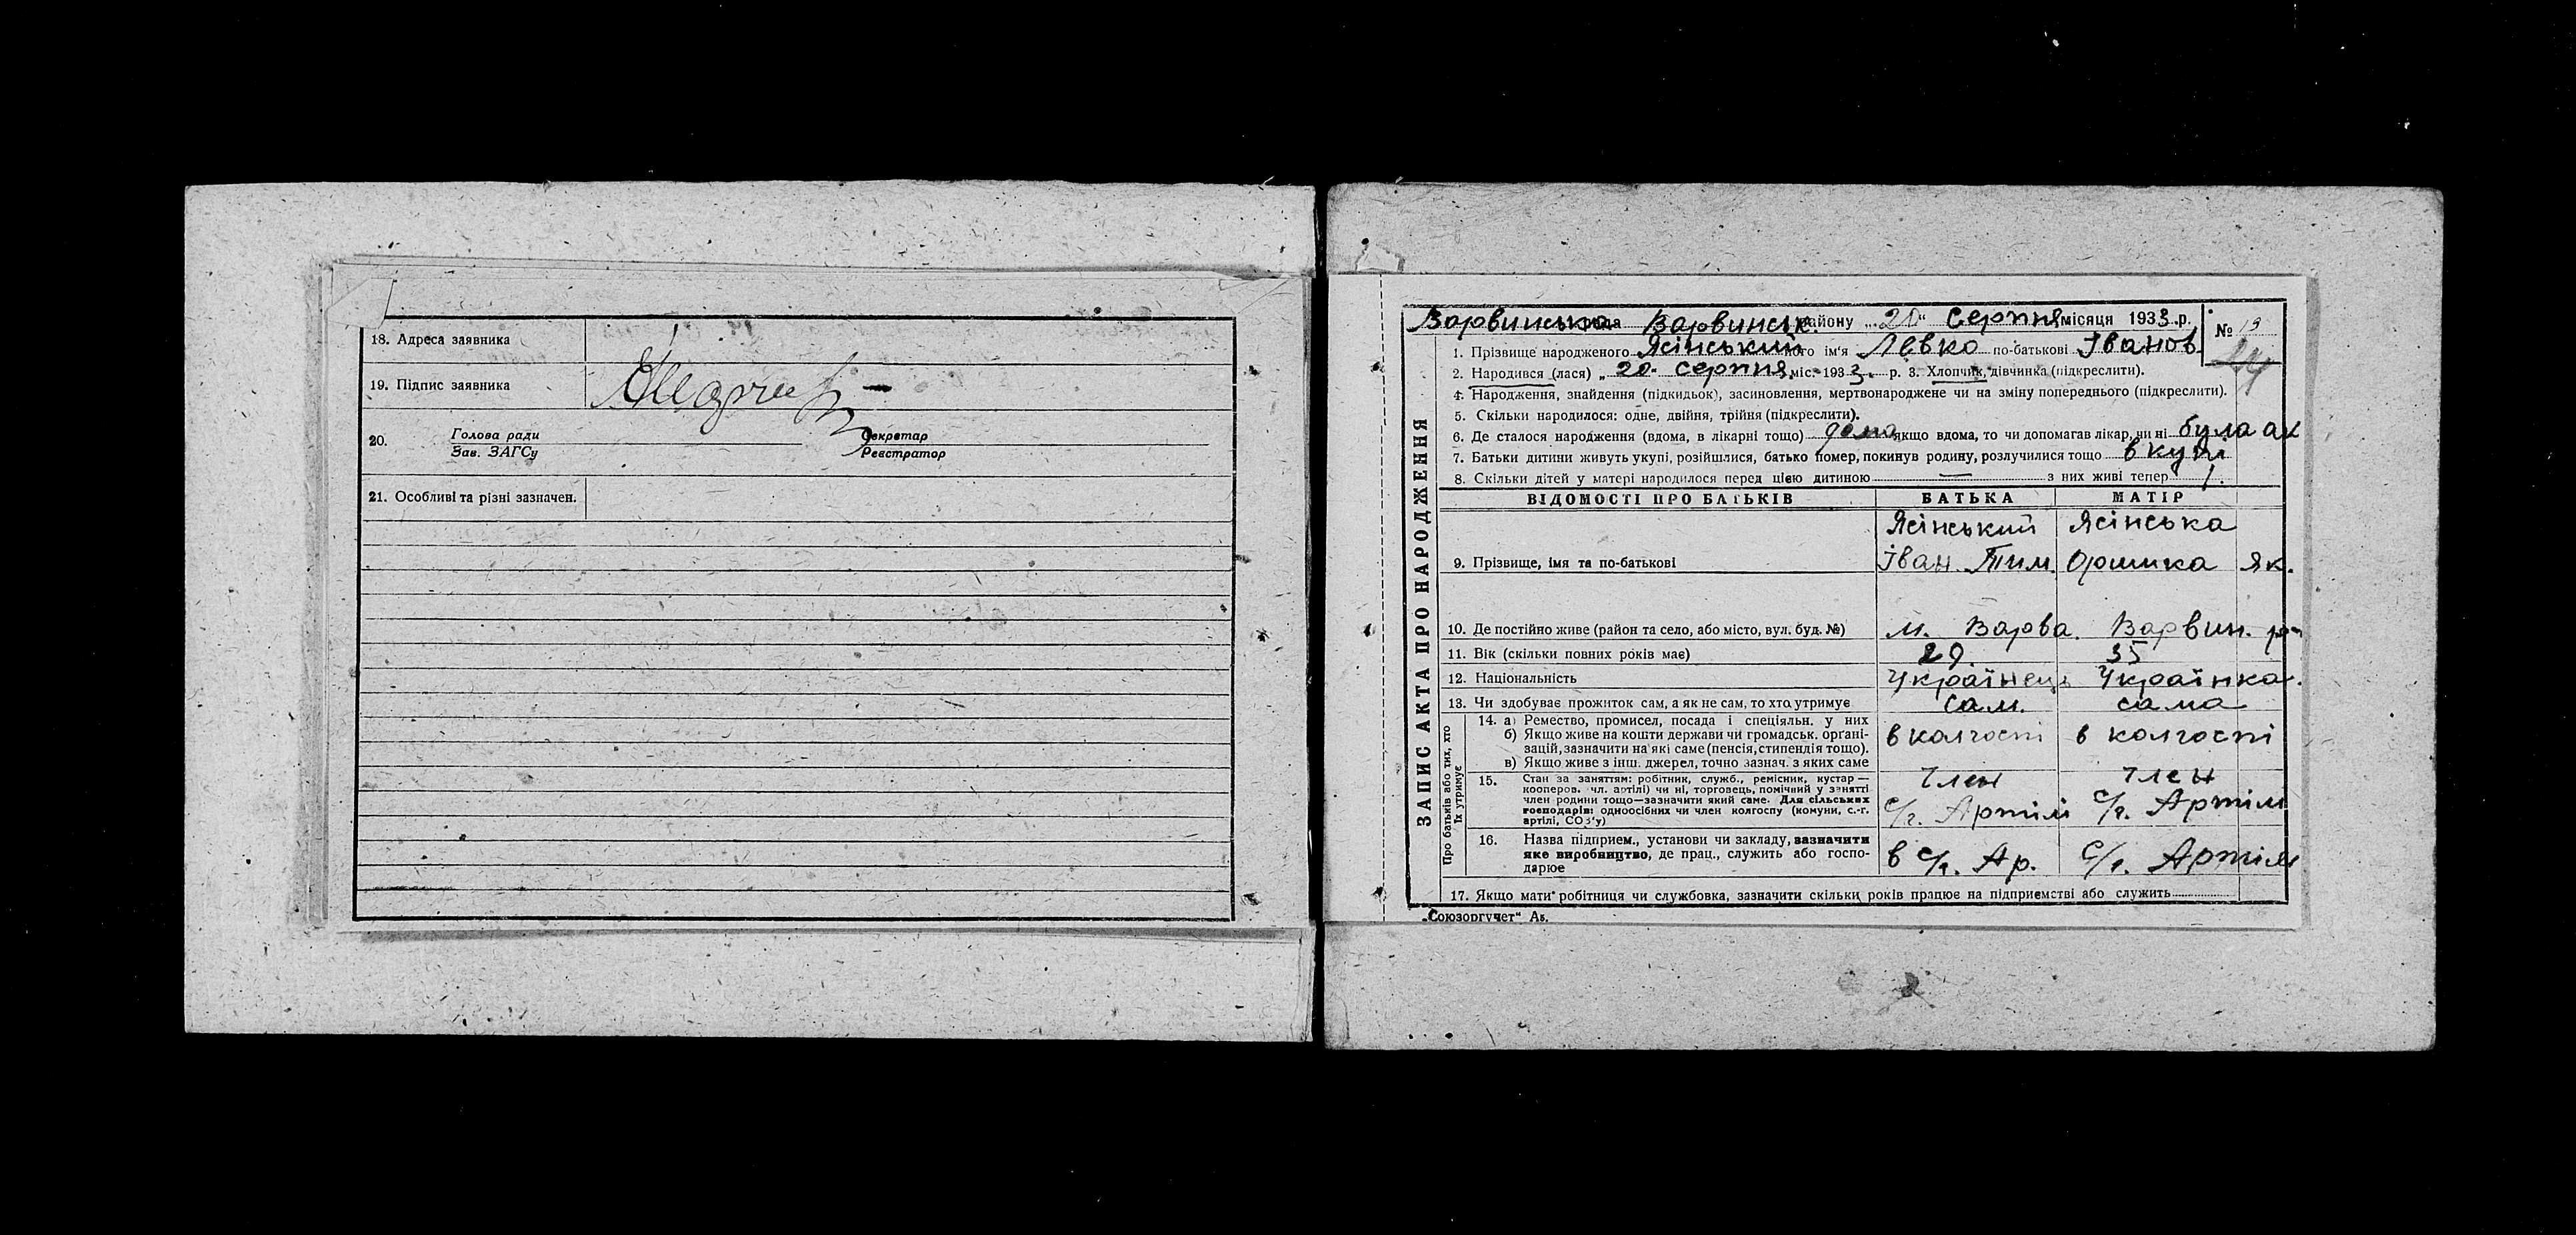 18. Адреса заявника
19. Підпис заявника
20. Голова ради Секретар
Зав. ЗАГСу Реєстратор
21. Особливі та різні зазначен.
ЗАПИС АКТА ПРО НАРОДЖЕННЯ
Варвинська рада Варвинськ. району „20“ Серпня місяця 1933 р. № 19
24
1. Прізвище народженого Ясінський його ім'я Левко по-батькові Іванов
2. Народився (лася) „20. серпня міс. 1933. р. 3. Хлопчик, дівчинка (підкреслити).
4. Народження, знайдення (підкидьок), засиновлення, мертвонароджене чи на зміну попереднього (підкреслити).
5. Скільки народилося: одне, двійня, трійня (підкреслити).
6. Де сталося народження (вдома, в лікарні тощо) дома якщо вдома, то чи допомагав лікар, чи ні була ак
7. Батьки дитини живуть укупі, розійшлися, батько помер, покинув родину, розлучилися тощо вкупі
8. Скільки дітей у матері народилося перед цією дитиною — з них живі тепер 1.
ВІДОМОСТІ ПРО БАТЬКІВ БАТЬКА МАТІР
Ясінський Ясінська
9. Прізвище, імя та по-батькові Іван. Тим. Оришка Як.
10. Де постійно живе (район та село, або місто, вул. буд. №) м. Варва. Варвин. р-
11. Вік (скільки повних років має) 29. 35
12. Національність Українець Українка.
13. Чи здобуває прожиток сам, а як не сам, то хто утримує сам. сама
Про батьків або тих, хто їх утримує
14. а) Ремество, промисел, посада і спеціяльн. у них
б) Якщо живе на кошти держави чи громадськ. органі-
зацій, зазначити на які саме (пенсія, стипендія тощо). в колгоспі в колгоспі
в) Якщо живе з інш. джерел, точно зазнач. з яких саме
15. Стан за заняттям: робітник, служб., ремісник, кустар — член член
кооперов. чл. артілі) чи ні, торговець, помічний у занятті
член родини тощо—зазначити який саме. Для сільських
господарів: одноосібних чи член колгоспу (комуни, с.-г. с/г. Артілі с/г. Артілі
артілі, СОЗ'у)
16. Назва підприєм., установи чи закладу, зазначити
яке виробництво, де прац., служить або госпо- в с/г. Ар. с/г. Артілі
дарює
17. Якщо мати робітниця чи службовка, зазначити скільки років працює на підприємстві або служить
„Союзоргучет“